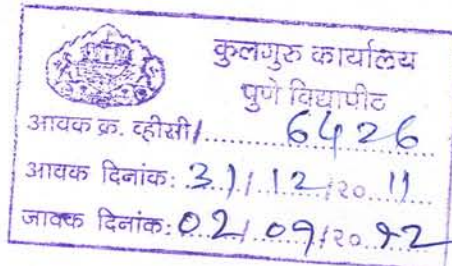 कुलगुरु कार्यालय
पुणे विद्यापीठ
आवक क्र. व्हीसी/ 6426
आवक दिनांक: 31/12/२० 11
जावक दिनांक: 02/ 09/२० १2